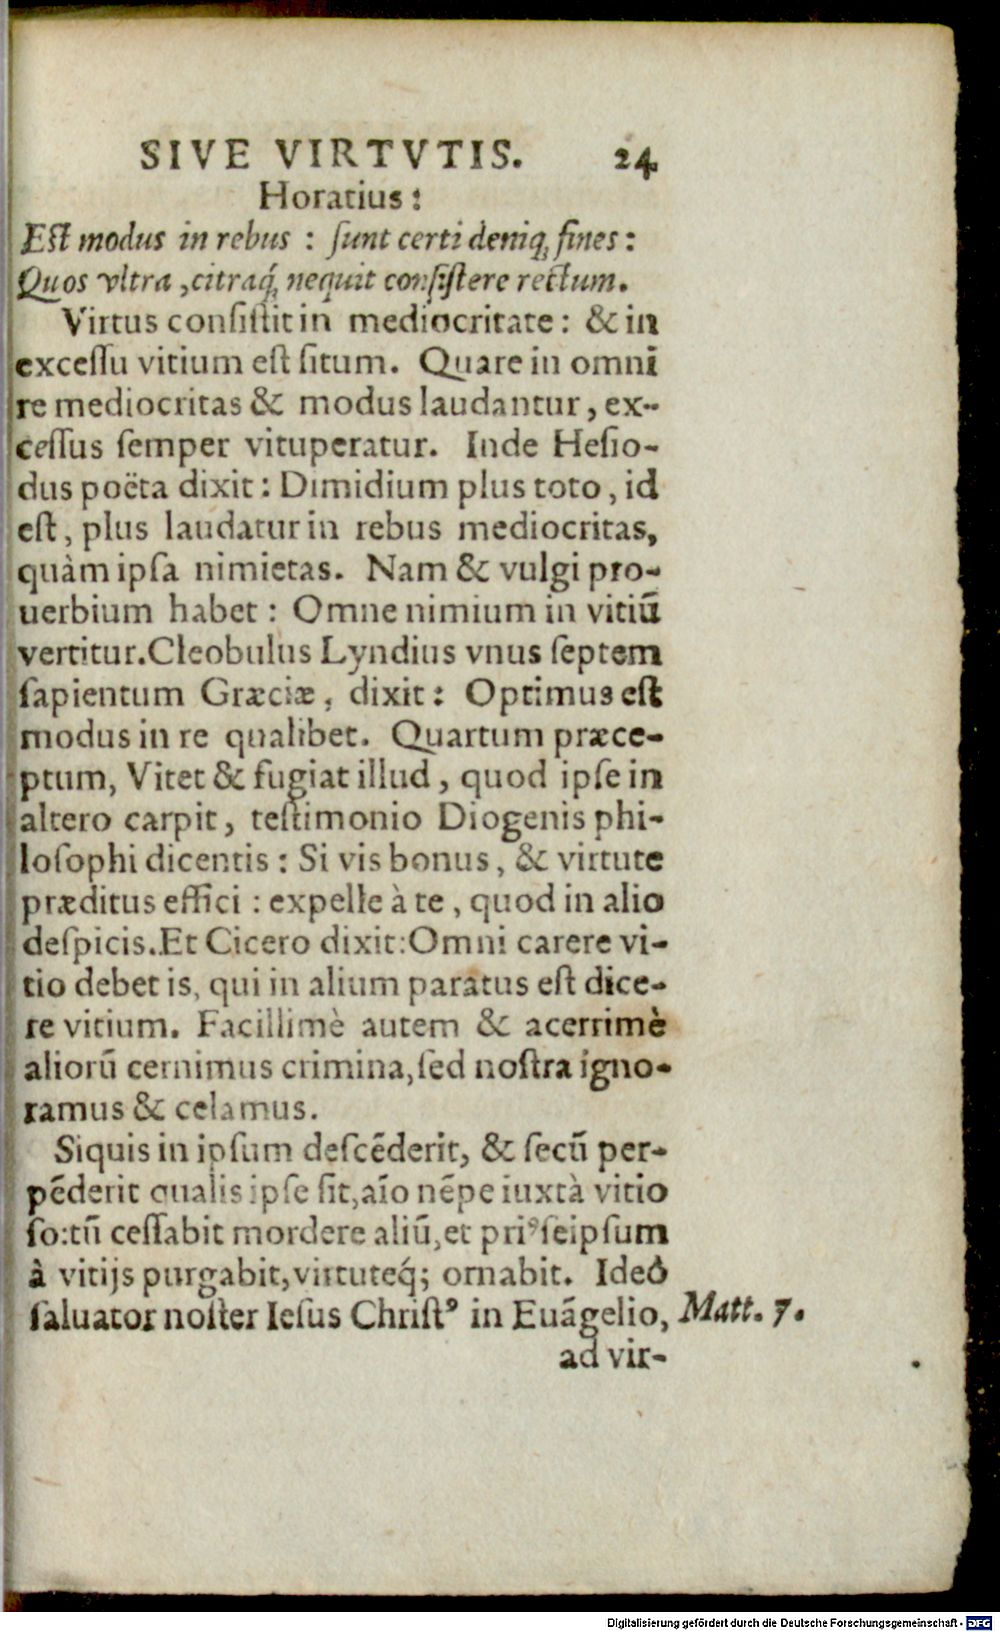 SIVE VIRTVTIS. 24
Horatius:
Eſt modus in rebus : ſunt certi deniq; fines:
Quos vltra, citraq́; nequit conſiſtere rectum.
Virtus conſiſtit in mediocritate: & in
exceſſu vitium eſt ſitum. Quare in omni
re mediocritas & modus laudantur, ex-
ceſſus ſemper vituperatur. Inde Heſio-
dus poëta dixit: Dimidium plus toto, id
eſt, plus laudatur in rebus mediocritas,
quàm ipſa nimietas. Nam & vulgi pro-
uerbium habet: Omne nimium in vitiū
vertitur. Cleobulus Lyndius vnus ſeptem
ſapientum Græciæ, dixit: Optimus eſt
modus in re qualibet. Quartum præce-
ptum, Vitet & fugiat illud, quod ipſe in
altero carpit, teſtimonio Diogenis phi-
loſophi dicentis: Si vis bonus, & virtute
præditus effici: expelle à te, quod in alio
deſpicis. Et Cicero dixit: Omni carere vi-
tio debet is, qui in alium paratus eſt dice-
re vitium. Facillimè autem & acerrimè
aliorū cernimus crimina, ſed noſtra igno-
ramus & celamus.
Siquis in ipſum deſcēderit, & ſecū per-
pēderit qualis ipſe ſit, aīo nēpe iuxtà vitio
ſo: tū ceſſabit mordere aliū, et priꝰ ſeipſum
à vitijs purgabit, virtuteq́; ornabit. Ideò
ſaluator noſter Ieſus Chriſtꝰ in Euāgelio, Matt. 7.
ad vir-
Digitalisierung gefördert durch die Deutsche Forschungsgemeinschaft - DFG